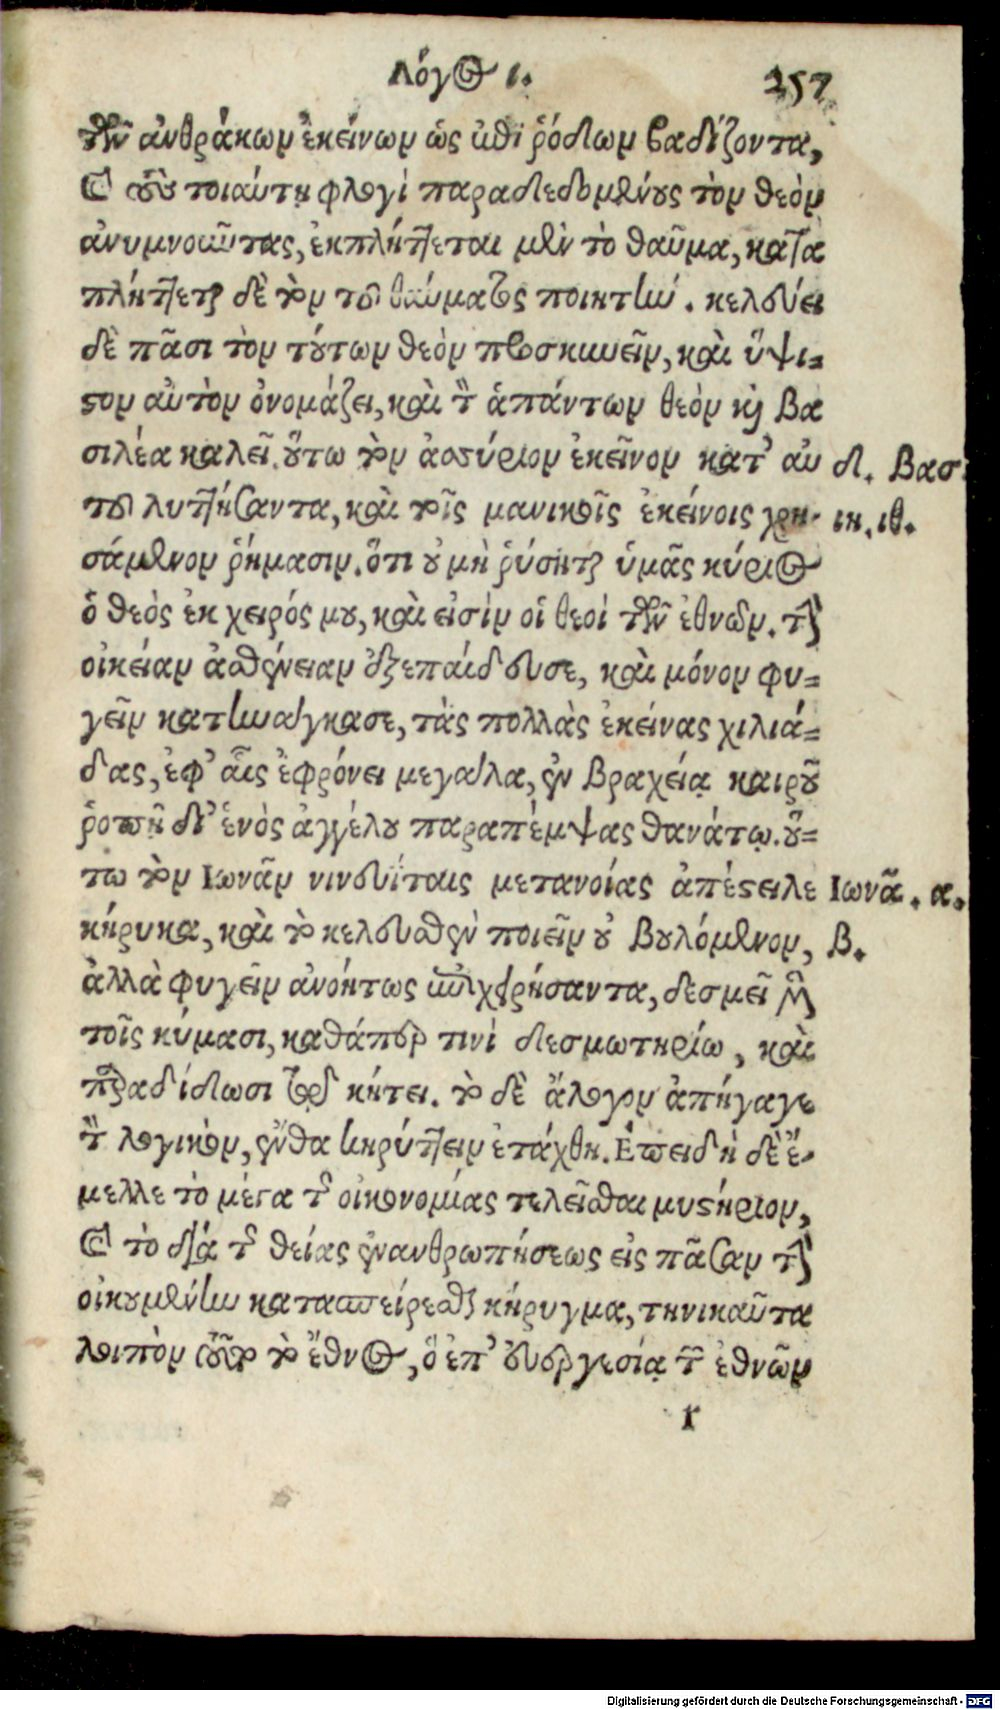 Λόγος ι. 257
τῶν ἀνθράκων ἐκείνων ὡς ἐπὶ ῥόδων βαδίζοντα,
καὶ τοὺς τοιαύτῃ φλογὶ παραδεδομένους τὸν θεὸν
ἀνυμνοῦντας, ἐκπλήττεται μὲν τὸ θαῦμα, κατα
πλήττεται δὲ τὸν τοῦ θαύματος ποιητὴν. κελεύει
δὲ πᾶσι τὸν τούτων θεὸν προσκυνεῖν, καὶ ὕψι=
στον αὐτὸν ὀνομάζει, καὶ τῶν ἁπάντων θεὸν καὶ βα
σιλέα καλεῖ. οὕτω τὸν ἀσσύριον ἐκεῖνον κατ’ αὐ δ. Βασ.
τοῦ λυττήσαντα, καὶ τοῖς μανικοῖς ἐκείνοις χρη- ιη. ιθ.
σάμενον ῥήμασιν. ὅτι οὐ μὴ ῥύσηται ὑμᾶς κύριος
ὁ θεὸς ἐκ χειρός μου, καὶ εἰσὶν οἱ θεοὶ τῶν ἐθνῶν. τὴν
οἰκείαν ἀσθένειαν ἐξεπαίδευσε, καὶ μόνον φυ=
γεῖν κατηνάγκασε, τὰς πολλὰς ἐκείνας χιλιά=
δας, ἐφ’ αἷς ἐφρόνει μεγάλα, ἐν βραχείᾳ καιροῦ
ῥοπῇ δι’ ἑνὸς ἀγγέλου παραπέμψας θανάτῳ. οὕ=
τω τὸν Ιωνᾶν νινευΐταις μετανοίας ἀπέστειλε Ιωνᾶ. α.
κήρυκα, καὶ τὸ κελευσθὲν ποιεῖν οὐ βουλόμενον, β.
ἀλλὰ φυγεῖν ἀνοήτως ἐπιχειρήσαντα, δεσμεῖ μὲν
τοῖς κύμασι, καθάπερ τινὶ δεσμωτηρίω, καὶ
παραδίδωσι τῷ κήτει. τὸ δὲ ἄλογον ἀπήγαγε
τὸν λογικὸν, ἔνθα κηρύττειν ἐτάχθη. Ἐπειδὴ δὲ ἔ-
μελλε τὸ μέγα τῆς οἰκονομίας τελεῖσθαι μυστήριον,
καὶ τὸ διὰ τῆς θείας ἐνανθρωπήσεως εἰς πᾶσαν τὴν
οἰκουμένην κατασπείρεσθαι κήρυγμα, τηνικαῦτα
λοιπὸν οὖν τὸ ἔθνος, ὃ ἐπ’ εὐεργεσίᾳ τῶν ἐθνῶν
r
Digitalisierung gefördert durch die Deutsche Forschungsgemeinschaft - DFG